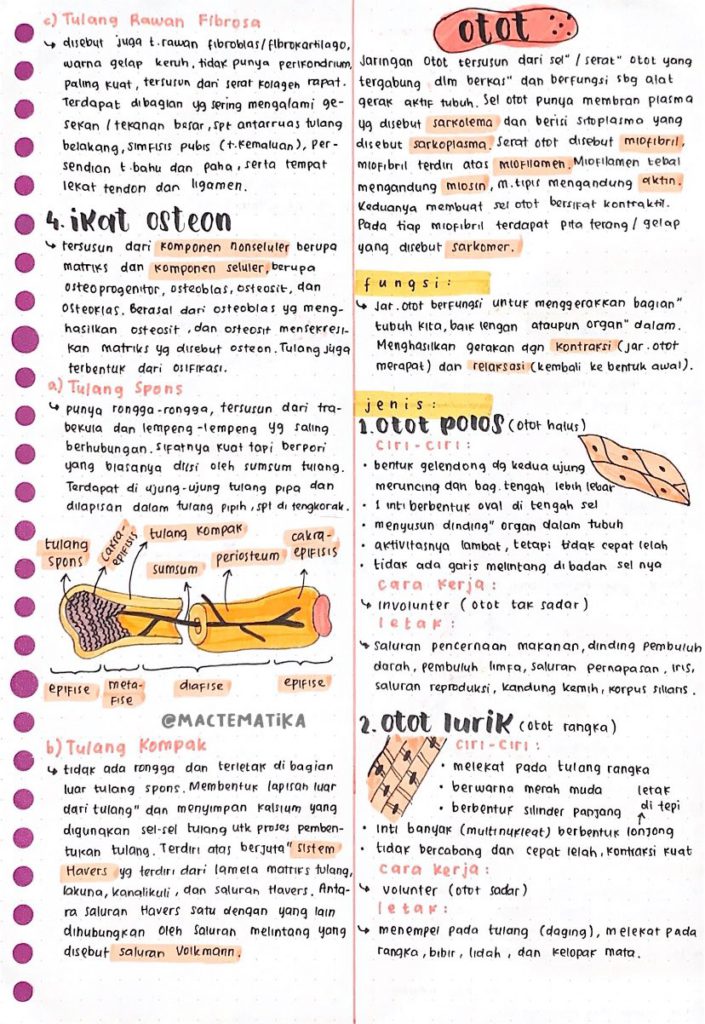 c) Tulang Rawan Fibrosa
↳ disebut juga t.rawan fibroblas/fibrokartilago,
warna gelap keruh, tidak punya perikondrium,
paling kuat, tersusun dari serat kolagen rapat.
Terdapat dibagian yg sering mengalami ge-
sekan / tekanan besar, spt antarruas tulang
belakang, simfisis pubis (t.kemaluan), per-
sendian t.bahu dan paha, serta tempat
lekat tendon dan ligamen.
4. ikat osteon
↳ tersusun dari komponen nonseluler berupa
matriks dan komponen seluler, berupa
osteoprogenitor, osteoblas, osteosit, dan
osteoklas. Berasal dari osteoblas yg meng-
hasilkan osteosit, dan osteosit mensekresi-
kan matriks yg disebut osteon. Tulang juga
terbentuk dari osifikasi.
a) Tulang Spons
↳ punya rongga-rongga, tersusun dari tra-
bekula dan lempeng-lempeng yg saling
berhubungan. Sifatnya kuat tapi berpori
yang biasanya diisi oleh sumsum tulang.
Terdapat di ujung-ujung tulang pipa dan
dilapisan dalam tulang pipih, spt di tengkorak.
tulang
spons
cakra-
epifisis
tulang kompak
sumsum
periosteum
cakra-
epifisis
epifise
meta-
fise
diafise
epifise
@MACTEMATIKA
b) Tulang Kompak
↳ tidak ada rongga dan terletak di bagian
luar tulang spons. Membentuk lapisan luar
dari tulang" dan menyimpan kalsium yang
digunakan sel-sel tulang utk proses pemben-
tukan tulang. Terdiri atas berjuta" sistem
Havers yg terdiri dari lamela matriks tulang,
lakuna, kanalikuli, dan saluran Havers. Anta-
ra saluran Havers satu dengan yang lain
dihubungkan oleh saluran melintang yang
disebut saluran Volkmann.
otot
Jaringan Otot tersusun dari sel" / serat" otot yang
tergabung dlm berkas" dan berfungsi sbg alat
gerak aktif tubuh. Sel otot punya membran plasma
yg disebut sarkolema dan berisi sitoplasma yang
disebut sarkoplasma. Serat otot disebut miofibril,
miofibril terdiri atas miofilamen. Miofilamen tebal
mengandung miosin, m.tipis mengandung aktin.
Keduanya membuat sel otot bersifat kontraktil.
Pada tiap miofibril terdapat pita terang / gelap
yang disebut sarkomer.
fungsi:
↳ Jar.otot berfungsi untuk menggerakkan bagian"
tubuh kita, baik lengan ataupun organ" dalam.
Menghasilkan gerakan dgn kontraksi (jar.otot
merapat) dan relaksasi (kembali ke bentuk awal).
jenis:
1. otot polos (otot halus)
ciri-ciri:
• bentuk gelendong dg kedua ujung
meruncing dan bag. tengah lebih lebar
• 1 inti berbentuk oval di tengah sel
• menyusun dinding" organ dalam tubuh
• aktivitasnya lambat, tetapi tidak cepat lelah
• tidak ada garis melintang di badan sel nya
cara kerja:
↳ involunter (otot tak sadar)
letak:
↳ saluran pencernaan makanan, dinding pembuluh
darah, pembuluh limfa, saluran pernapasan, iris,
saluran reproduksi, kandung kemih, korpus siliaris.
2. otot lurik (otot rangka)
ciri-ciri:
• melekat pada tulang rangka
• berwarna merah muda
• berbentuk silinder panjang
letak
di tepi
↑
• inti banyak (multinukleat) berbentuk lonjong
• tidak bercabang dan cepat lelah, kontraksi kuat
cara kerja:
↳ volunter (otot sadar)
letak:
↳ menempel pada tulang (daging), melekat pada
rangka, bibir, lidah, dan kelopak mata.